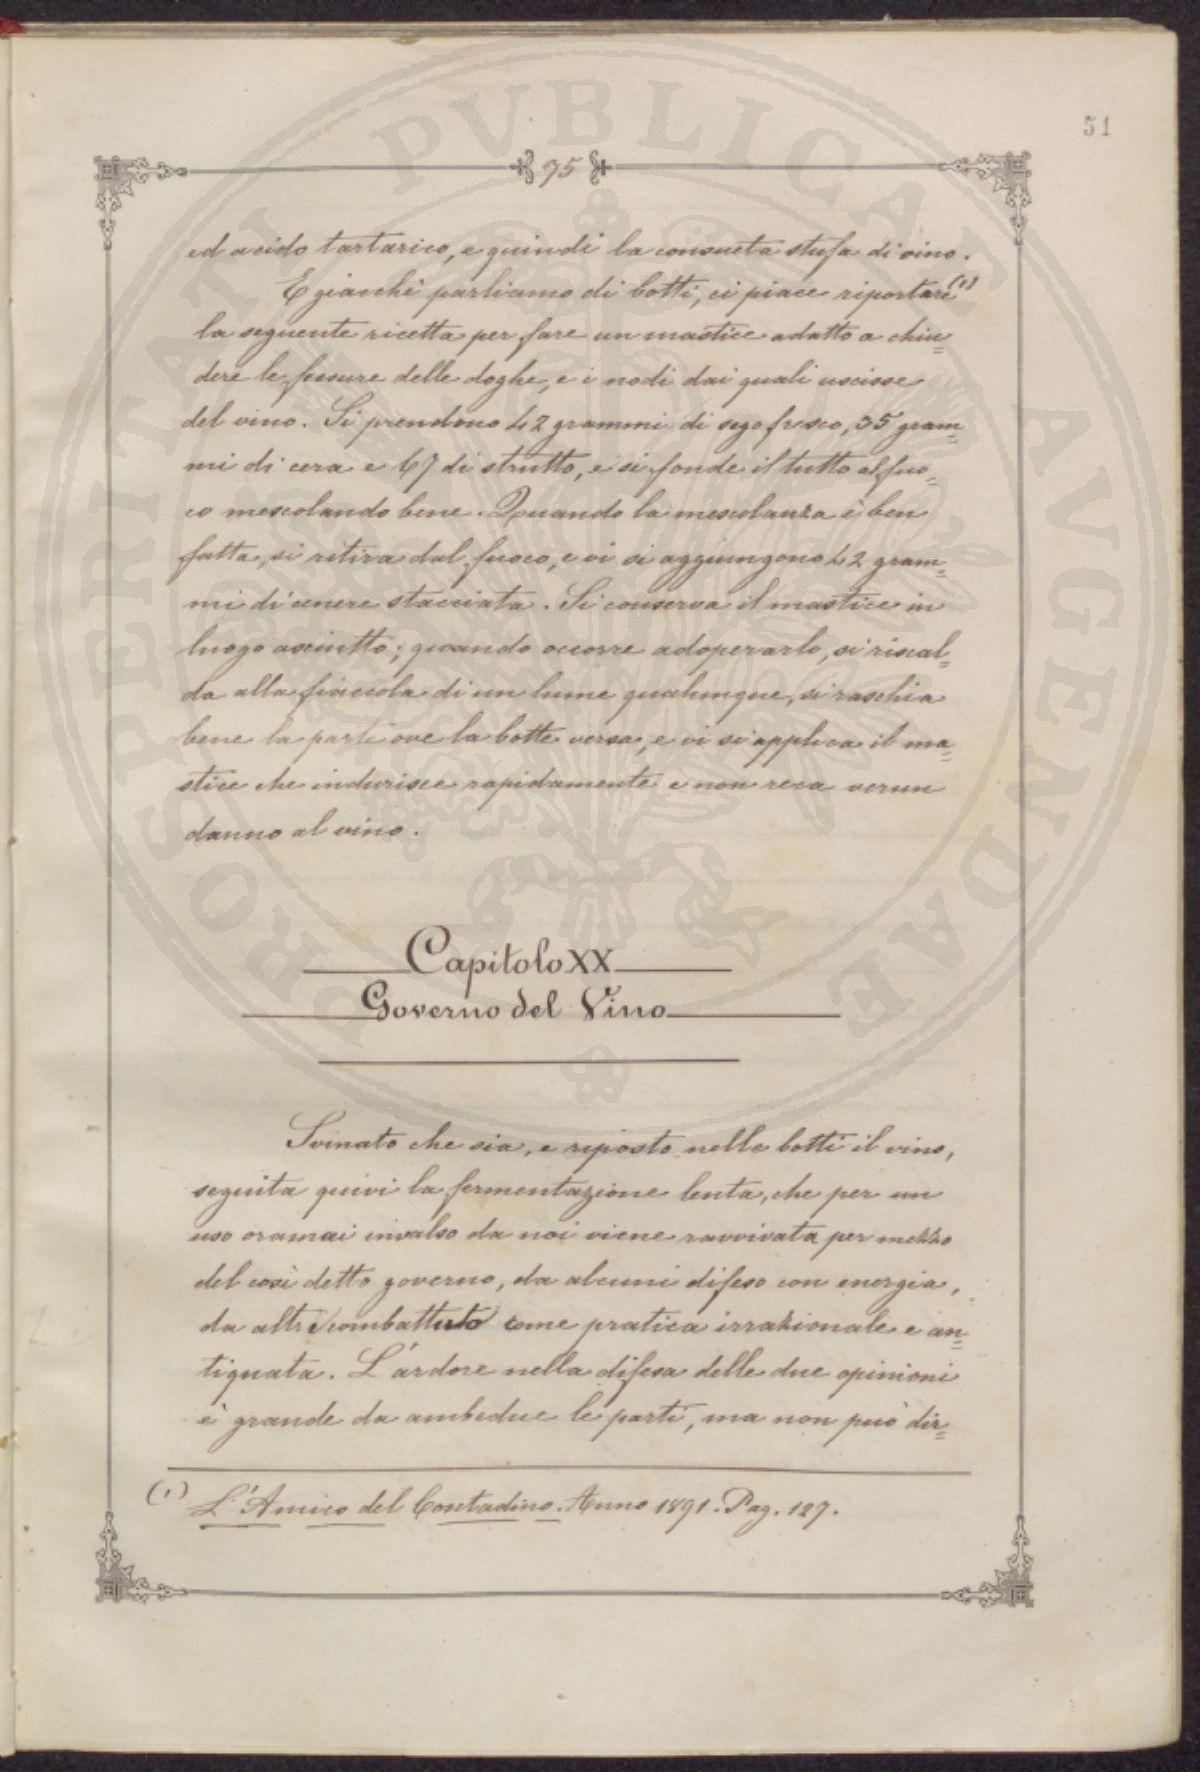 51
95
ed acido tartarico, e quindi la consueta stufa di vino.
E giacchè parliamo di botti, ci piace riportare (1)
la seguente ricetta per fare un mastice adatto a chiu=
dere le fessure delle doghe, e i nodi dai quali uscisse
del vino. Si prendono 42 grammi di sego fresco, 35 gram=
mi di cera e 67 di strutto, e si fonde il tutto al fuo=
co mescolando bene. Quando la mescolanza è ben
fatta, si ritira dal fuoco, e vi si aggiungono 42 gram=
mi di cenere stacciata. Si conserva il mastice in
luogo asciutto; quando occorre adoperarlo, si riscal=
da alla fiaccola di un lume qualunque, si raschia
bene la parti ove la botte versa, e vi si applica il ma=
stice che indurisce rapidamente e non reca verun
danno al vino.
Capitolo XX
Governo del Vino
Svinato che sia, e riposto nelle botti il vino,
seguita quivi la fermentazione lenta, che per un
uso oramai invalso da noi viene ravvivata per mezzo
del così detto governo, da alcuni difeso con energia,
da altri combattuto come pratica irrazionale e an=
tiquata. L'ardore nella difesa delle due opinioni
è grande da ambedue le parti, ma non può dir=
(1) L'Amico del Contadino. Anno 1891. Pag. 127.
PROSPERITATI PVBLICAE AVGENDAE